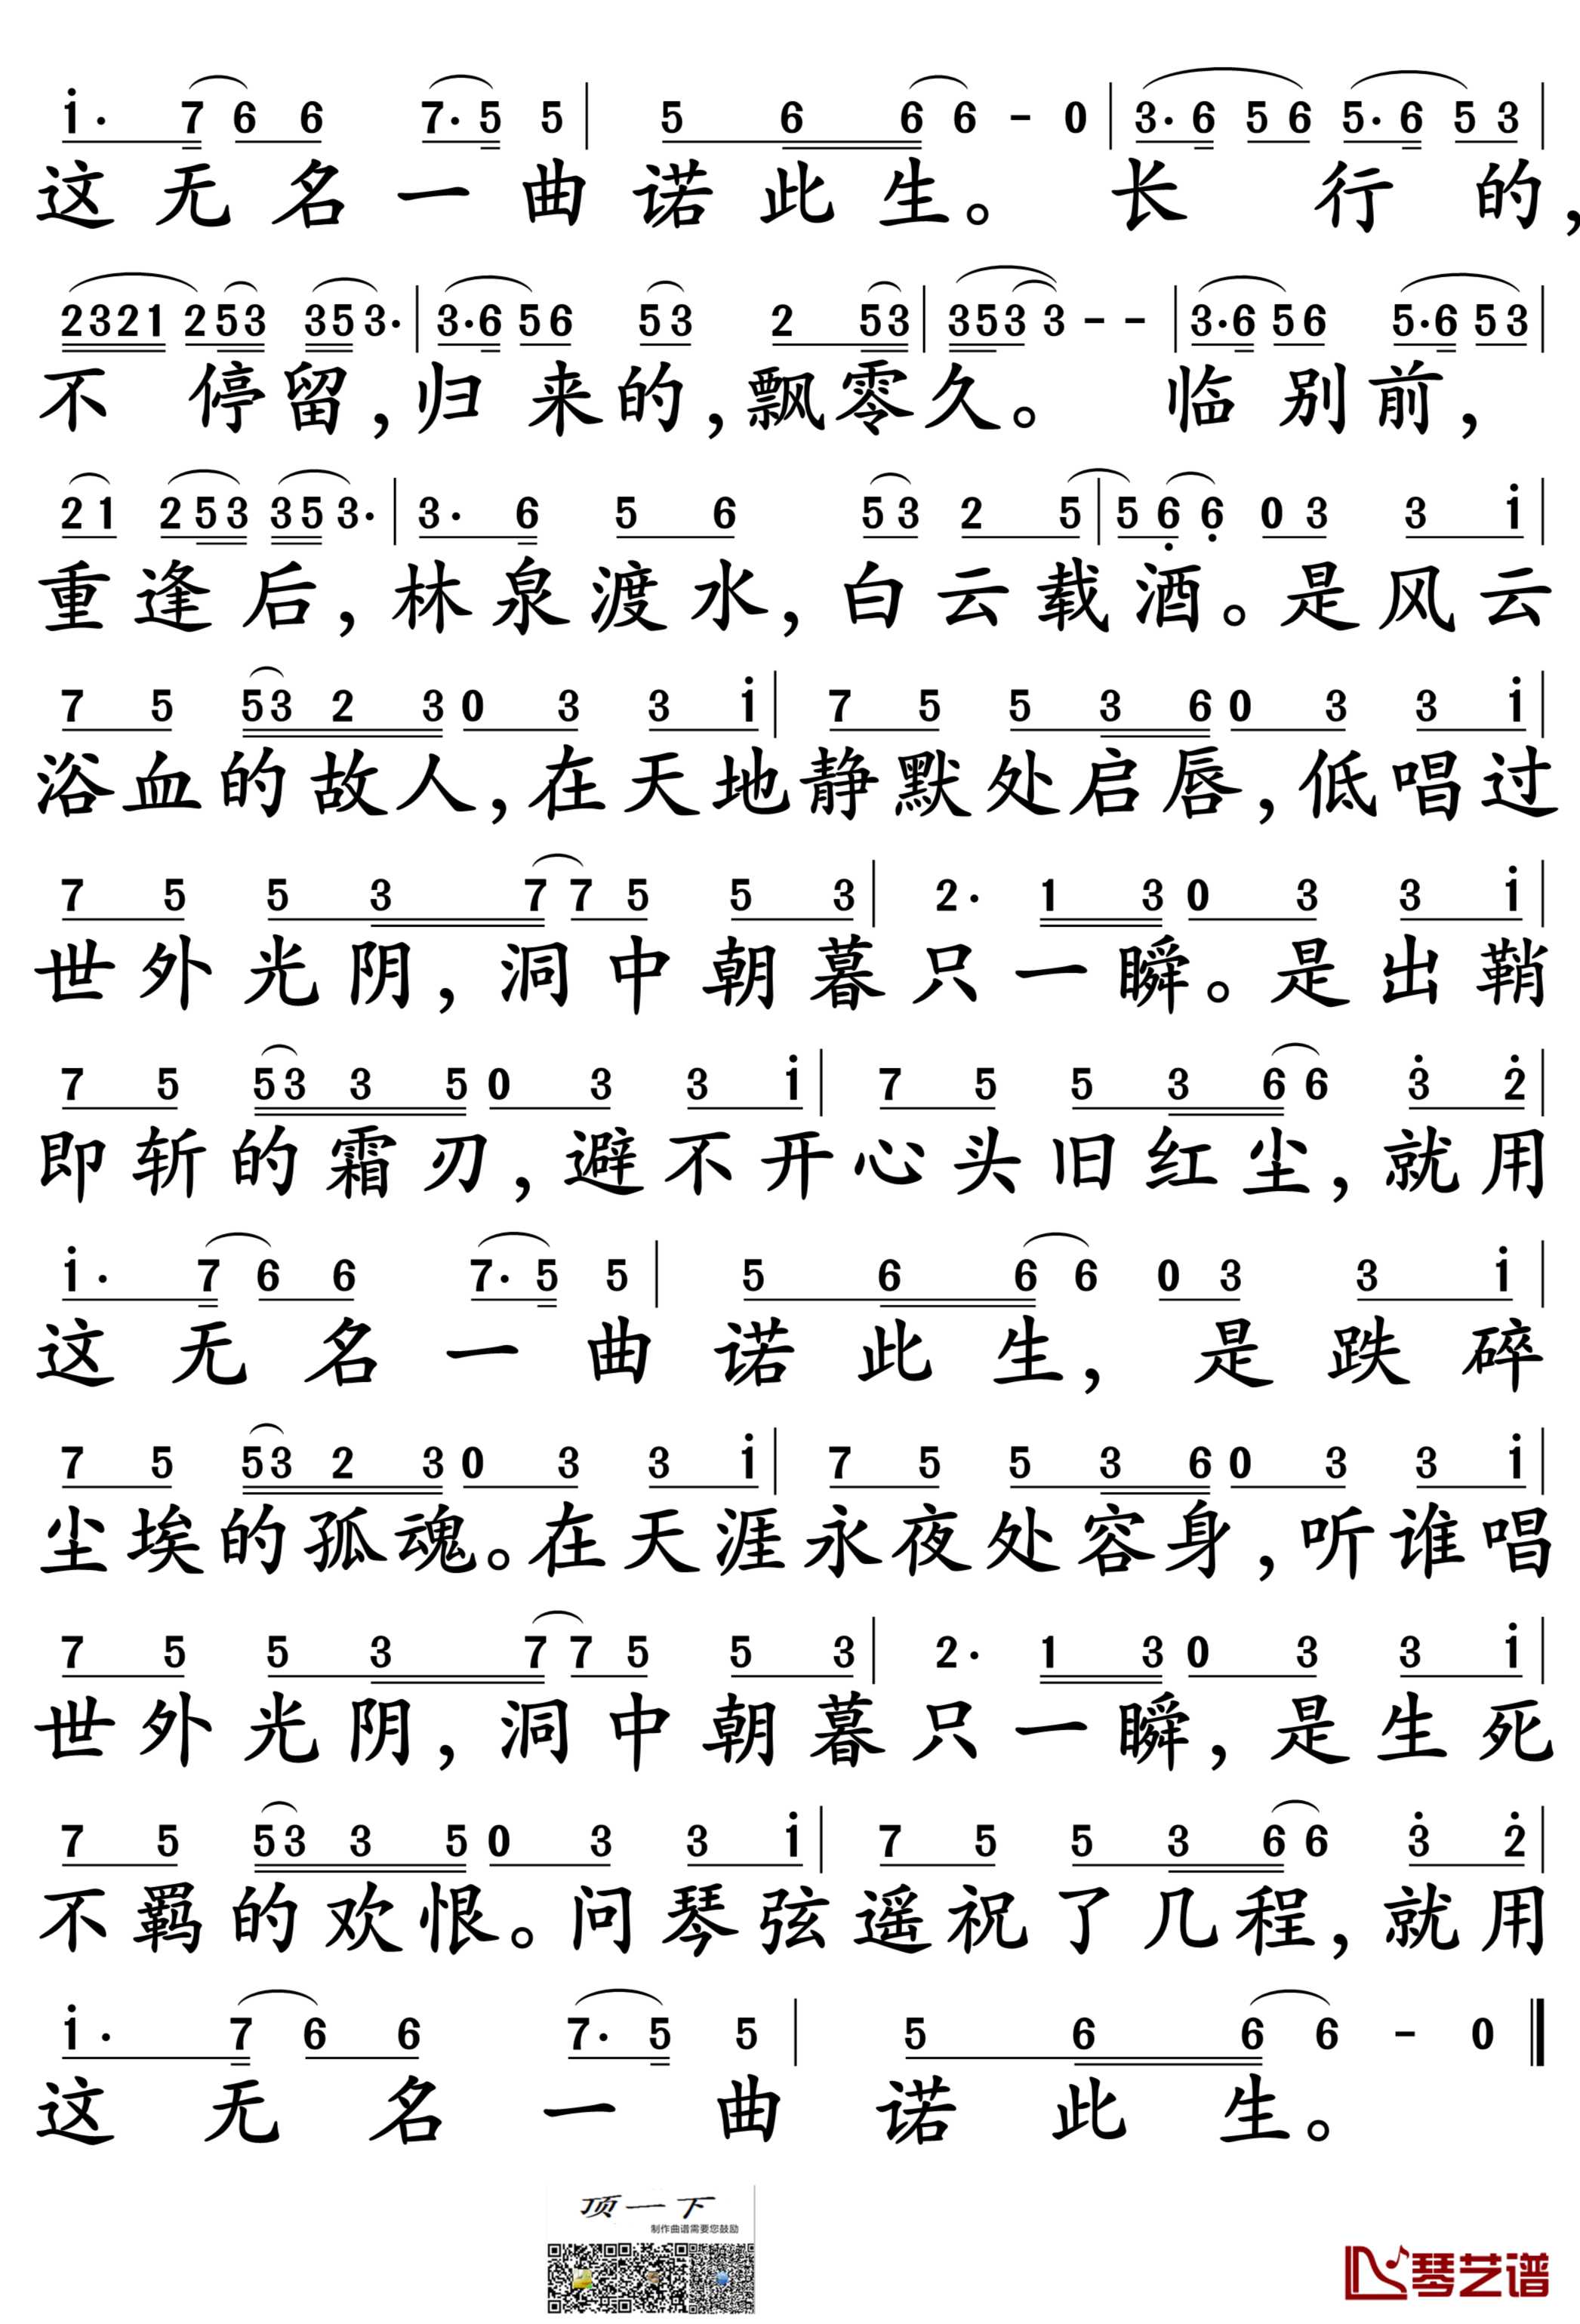 i· 7 6 6 7· 5 5 | 5 6 6 6 - 0 | 3· 6 5 6 5· 6 5 3 |
这无名一曲诺此生。长行的，
2 3 2 1 2 5 3 3 5 3· | 3· 6 5 6 5 3 2 5 3 | 3 5 3 3 - - | 3· 6 5 6 5· 6 5 3 |
不停留，归来的，飘零久。临别前，
2 1 2 5 3 3 5 3· | 3· 6 5 6 5 3 2 5 | 5 6̣ 6̣ 0 3 3 i |
重逢后，林泉渡水，白云载酒。是风云
7 5 5 3 2 3 0 3 3 i | 7 5 5 3 6 0 3 3 i |
浴血的故人，在天地静默处启唇，低唱过
7 5 5 3 7 7 5 5 3 | 2· 1 3 0 3 3 i |
世外光阴，洞中朝暮只一瞬。是出鞘
7 5 5 3 3 5 0 3 3 i | 7 5 5 3 6 6 3̇ 2̇ |
即斩的霜刃，避不开心头旧红尘，就用
i· 7 6 6 7· 5 5 | 5 6 6 6 0 3 3 i |
这无名一曲诺此生，是跌碎
7 5 5 3 2 3 0 3 3 i | 7 5 5 3 6 0 3 3 i |
尘埃的孤魂。在天涯永夜处容身，听谁唱
7 5 5 3 7 7 5 5 3 | 2· 1 3 0 3 3 i |
世外光阴，洞中朝暮只一瞬，是生死
7 5 5 3 3 5 0 3 3 i | 7 5 5 3 6 6 3̇ 2̇ |
不羁的欢恨。问琴弦遥祝了几程，就用
i· 7 6 6 7· 5 5 | 5 6 6 6 - 0 ‖
这无名一曲诺此生。
顶一下
制作曲谱需要您鼓励
琴艺谱